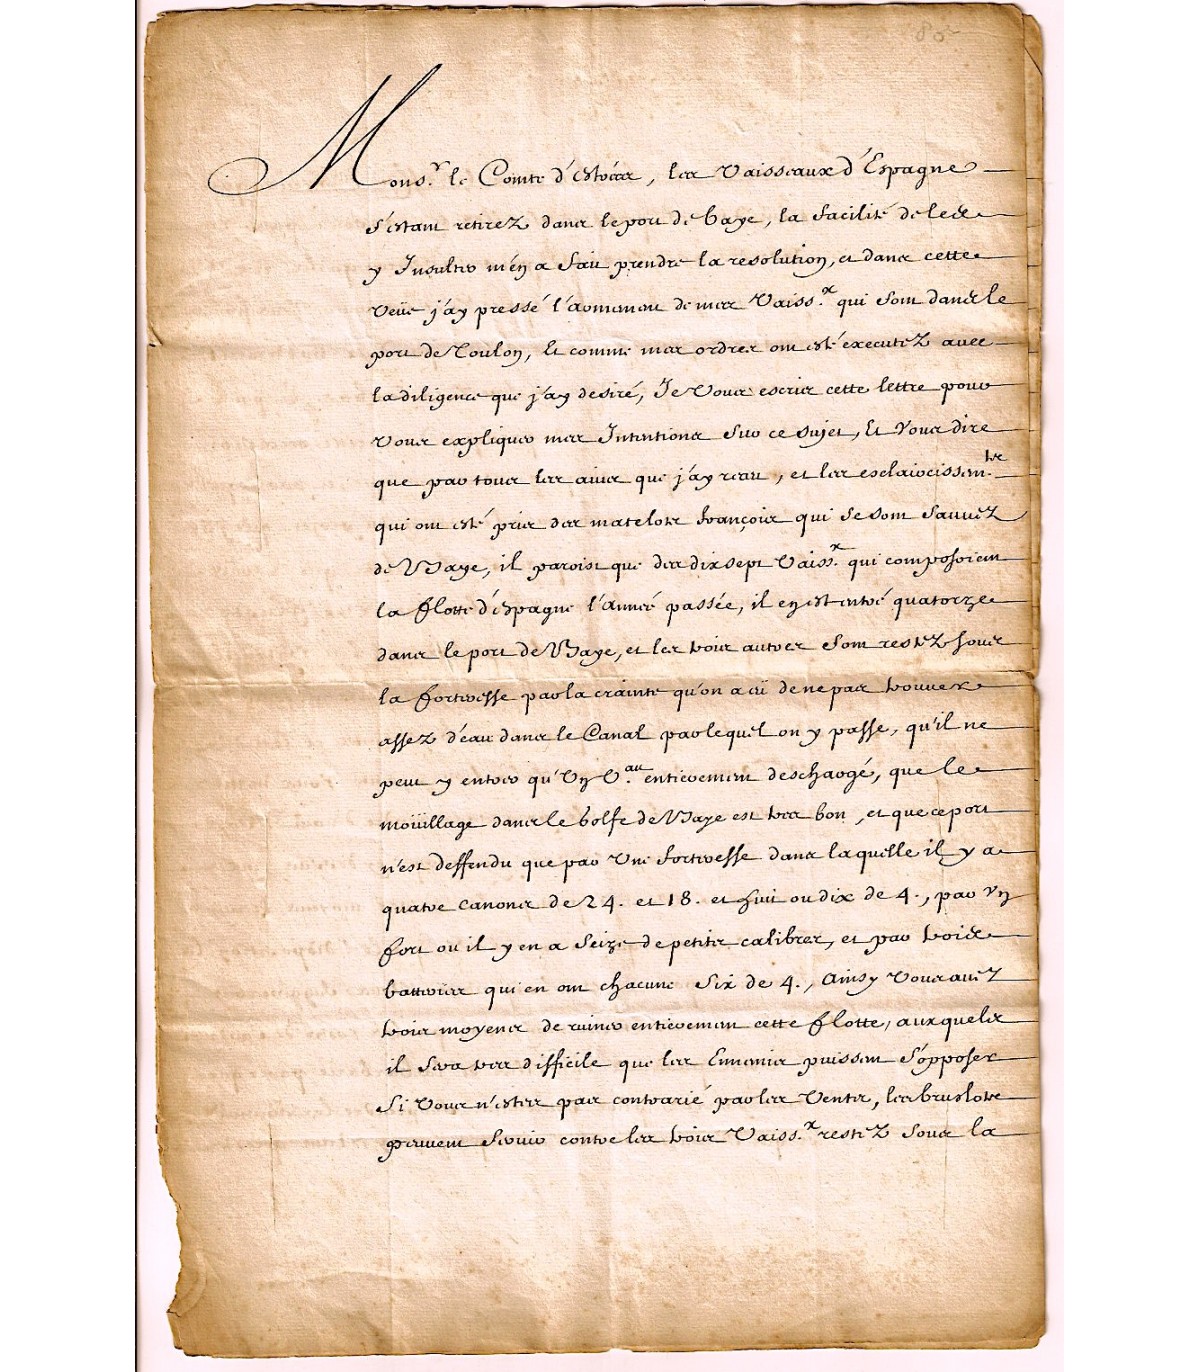 80
Mons.r le Comte d'Estrées, les Vaisseaux d'Espagne
s'estant retirez dans le port de baye, la facilité de les
y Insulter m'en a fait prendre la resolution, et dans cette
veüe j'ay pressé l'armement de mes Vaiss.x qui sont dans le
port de Toulon, Et comme mes ordres ont esté executez avec
la diligence que j'ay desiré, Je Vous escris cette lettre pour
vous expliquer mes Intentions sur ce sujet, Et Vous dire
que par tous les avis que j'ay receu, et les esclaircissem.ts
qui ont esté pris des matelots françois qui se sont sauvez
de Baye, il paroist que des dix sept Vaiss.x qui composoient
la flotte d'espagne l'année passée, il en est entré quatorze
dans le port de Baye, et les trois autres sont restez sous
la fortresse par la crainte qu'on a eü de ne pas trouver
assez d'eau dans le Canal par lequel on y passe, qu'il ne
peut y entrer qu'Un V.au entierement deschargé, que le
moüillage dans le Golfe de Baye est tres bon, et que ce port
n'est deffendu que par Une fortresse dans laquelle il y a
quatre canons de 24. et 18. et huit ou dix de 4., par Un
fort ou il y en a seize de petits calibres, et par trois
battries qui en ont chacune six de 4., Ainsy Vous avez
trois moyens de ruiner entierement cette flotte, auxquels
il sera tres difficile que les Ennemis puissent s'opposer
Si Vous n'estes pas contrarié par les Vents, les bruslots
peuvent servir contre les trois Vaiss.x restez sous la